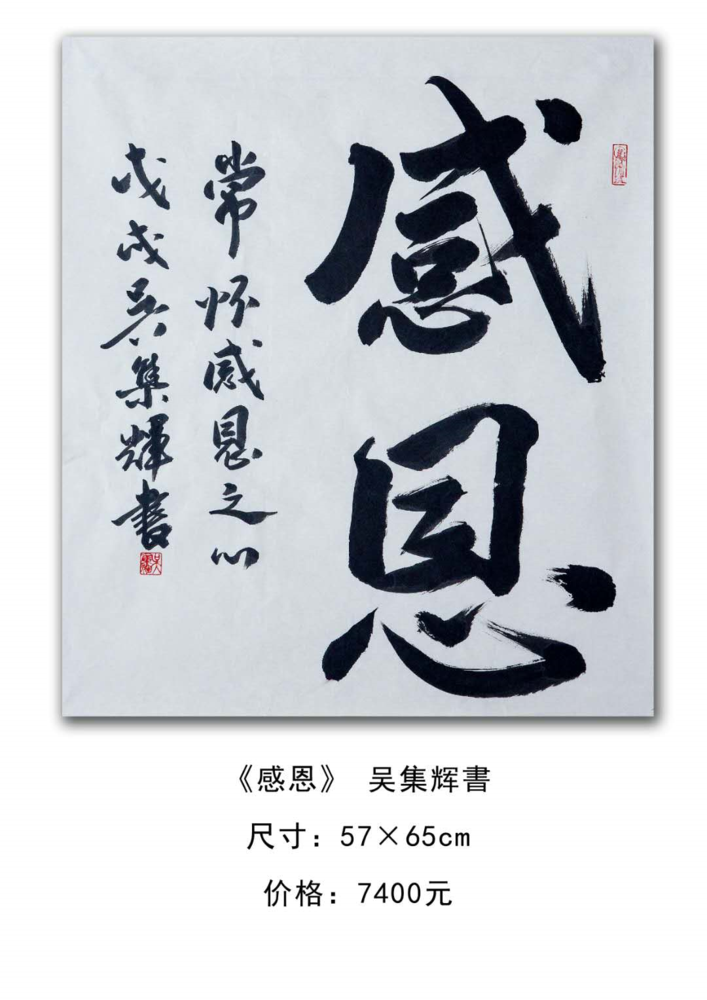 感恩
常怀感恩之心
戊戌吴集輝書
《感恩》 吴集辉書
尺寸：57×65cm
价格：7400元